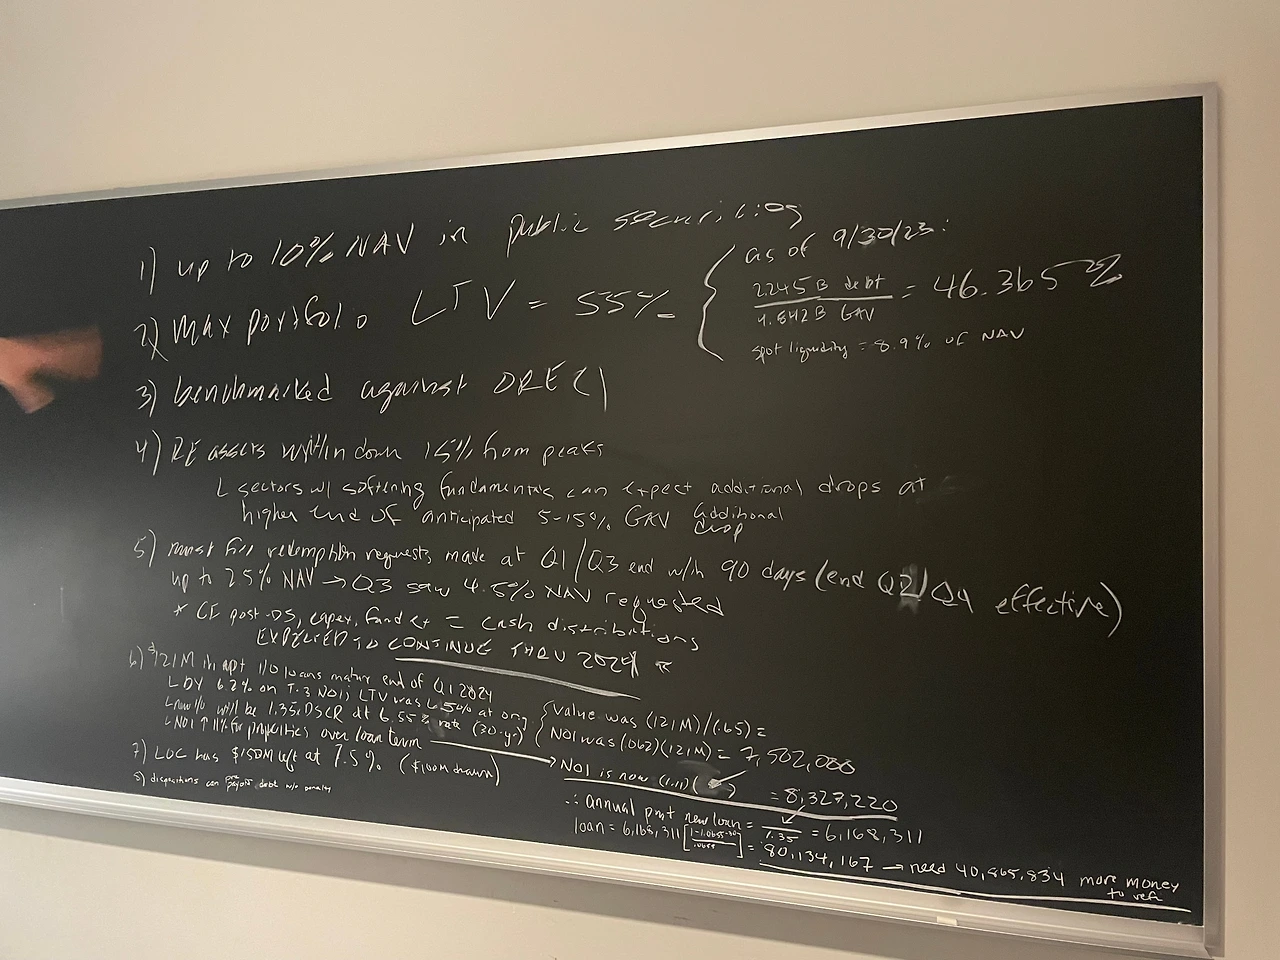 1) up to 10% NAV in public securities
2) max portfolio LTV = 55%
as of 9/30/23:
2.245B debt
4.842B GAV
= 46.365%
spot liquidity = 8.9% of NAV
3) benchmarked against
4) RE assets down 15% from peaks
L sectors w/ softening fundamentals can expect additional drops at
higher end of anticipated 5-15% GAV additional
drop
5) must fill redemption requests made at Q1/Q3 end w/in 90 days (end Q2/Q4 effective)
up to 25% NAV → Q3 saw 4.5% NAV requested
* CF post-DS, capex, fund = cash distributions
EXPECTED TO CONTINUE THRU 2024 *
6) $121M in apt I/O loans mature end of Q1 2024
L DY 6.2% on T-3 NOI; LTV was 65% at orig
L new I/O will be 1.35x DSCR at 6.55% rate (30-yr)
L NOI ↑ 11% for properties over loan term
{ value was (121M)/(.65) =
NOI was (.062)(121M) = 7,502,000
7) LOC has $150M left at 7.5% ($100M drawn)
8) dispositions can pre
payoff debt w/o penalty
NOI is now (1.11)( ) = 8,327,220
∴ annual pmt new loan = /1.35 = 6,168,311
loan = 6,168,311 [1-1.0655-30/.0655] = 80,134,167 → need 40,865,834 more money
to refi